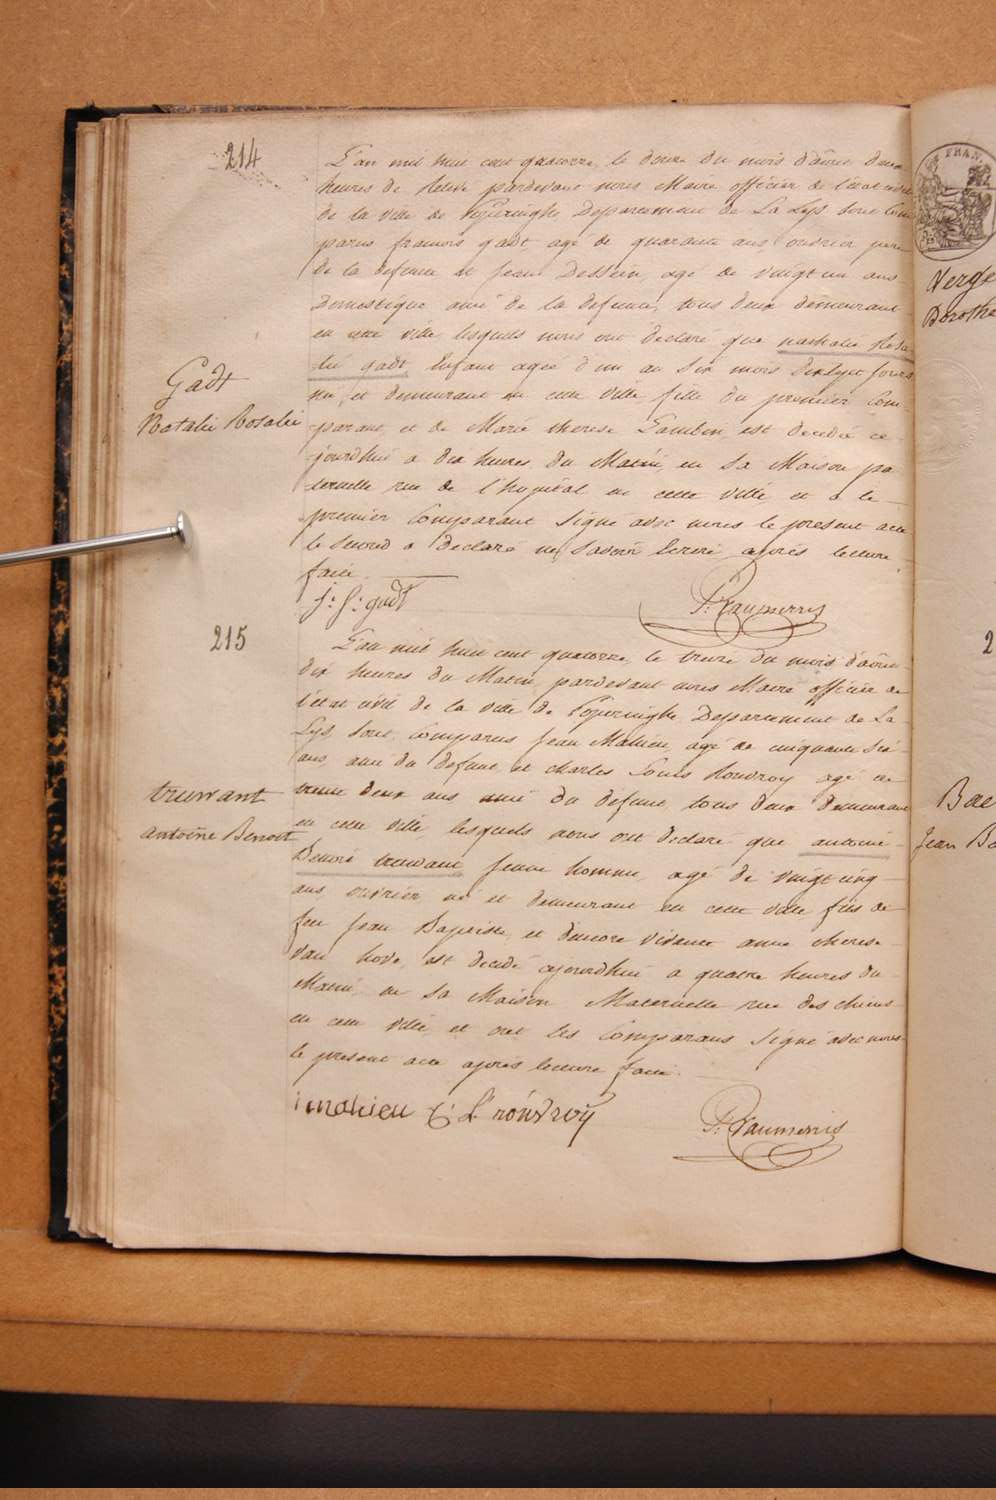 214
L'an mil huit cent quatorze, le douze du mois d'avril deux
heures de relevé pardevant nous Maire officier de l'état civil
de la ville de Poperinghe Departement de La Lys sont Com
parus francois gadt agé de quarante ans, ouvrier, pere
de la defunte et Jean Dessein, agé de vingt un ans
Domestique ami de la defunte, tous deux demeurant
en cette ville lesquels nous ont declaré que nathalie Rosa
Gadt
Natalie Rosalie
lie gadt, Enfant agée d'un an six mois dixhuit jours
née, et demeurant en cette ville, fille du premier Com-
parant, et de Marie therese Lambin, est decedée ce-
jourdhui a dix heures du Matin, en sa Maison pa
ternelle rue de l'hopital en cette ville et a le
premier Comparant signé avec nous le present acte
le second a declaré ne savoir Ecrire, après lecture
faite.
f: J: gadt
P: Vaumerris
215
L'an mil huit cent quatorze, le treize du mois d'avril
dix heures du Matin, pardevant nous Maire officier de
l'état civil de la ville de Poperinghe Departement de La
Lys, sont Comparus Jean Mahieu, agé de cinquante six
ans, ami du defunt, et charles Louis Rouvroy agé de
truwant
trente deux ans ami du defunt, tous deux demeurant
antoine Benoit
en cette ville, lesquels nous ont declaré que antoine
Benoit truwant jeune homme, agé de vingt cinq
ans, ouvrier, né et demeurant en cette ville fils de
feu Jean Baptiste, et d'encore vivante anne therese
van hove, est decedé cejourdhui a quatre heures du
Matin, en sa Maison Maternelle rue des chiens
en cette ville, et ont les Comparans signé avec nous
le present acte après lecture faite.
i mahieu C: L: rouvroy
P: Vaumerris
FRAN.
Verge
Dorothe
2
Bae
Jean Ba